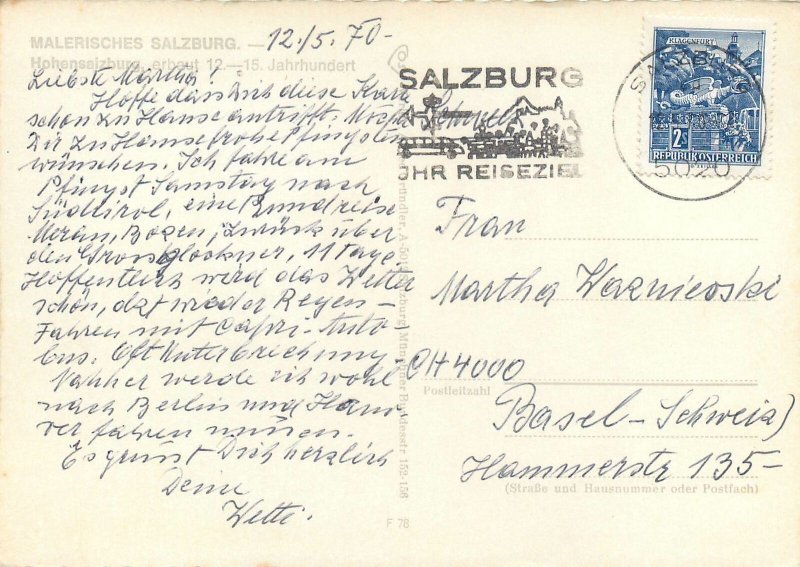 MALERISCHES SALZBURG. — 12./5. 70-
Hohensalzburg, erbaut 12.—15. Jahrhundert
Liebste Martha!
Hoffe dass Dich diese Karte
schon zu Hause antrifft. Möchte
Dir zu Hause frohe Pfingsten
wünschen. Ich fahre am
Pfingst Samstag nach
Südtirol, eine Rundreise
Meran, Bozen, zurück über
den Grossglockner, 11 Tage.
Hoffentlich wird das Wetter
schön, dzt wieder Regen –
Fahren mit Capri-Auto
bus. Oft Unterbrechung,
Nahher werde ich wohl
nach Berlin und Hano
ver fahren müssen.
Es grüsst Dich herzlich
Deine
Wetti.
F 78
SALZBURG
IHR REISEZIEL
KLAGENFURT
2S
REPUBLIK ÖSTERREICH
5020
Frau
Martha Wazniewski
CH 4000
Postleitzahl
Basel-Schweiz)
Hammerstr 135-
(Straße und Hausnummer oder Postfach)